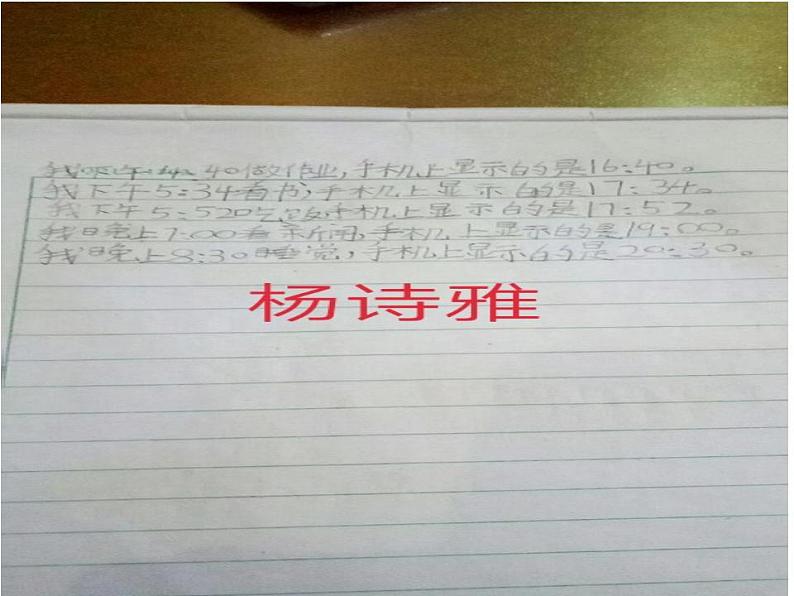 我下午4:40做作业,手机上显示的是16:40。
我下午5:34看书,手机上显示的是17:34。
我下午5:52吃饭,手机上显示的是17:52。
我晚上7:00看新闻,手机上显示的是19:00。
我晚上8:30睡觉,手机上显示的是20:30。
杨诗雅